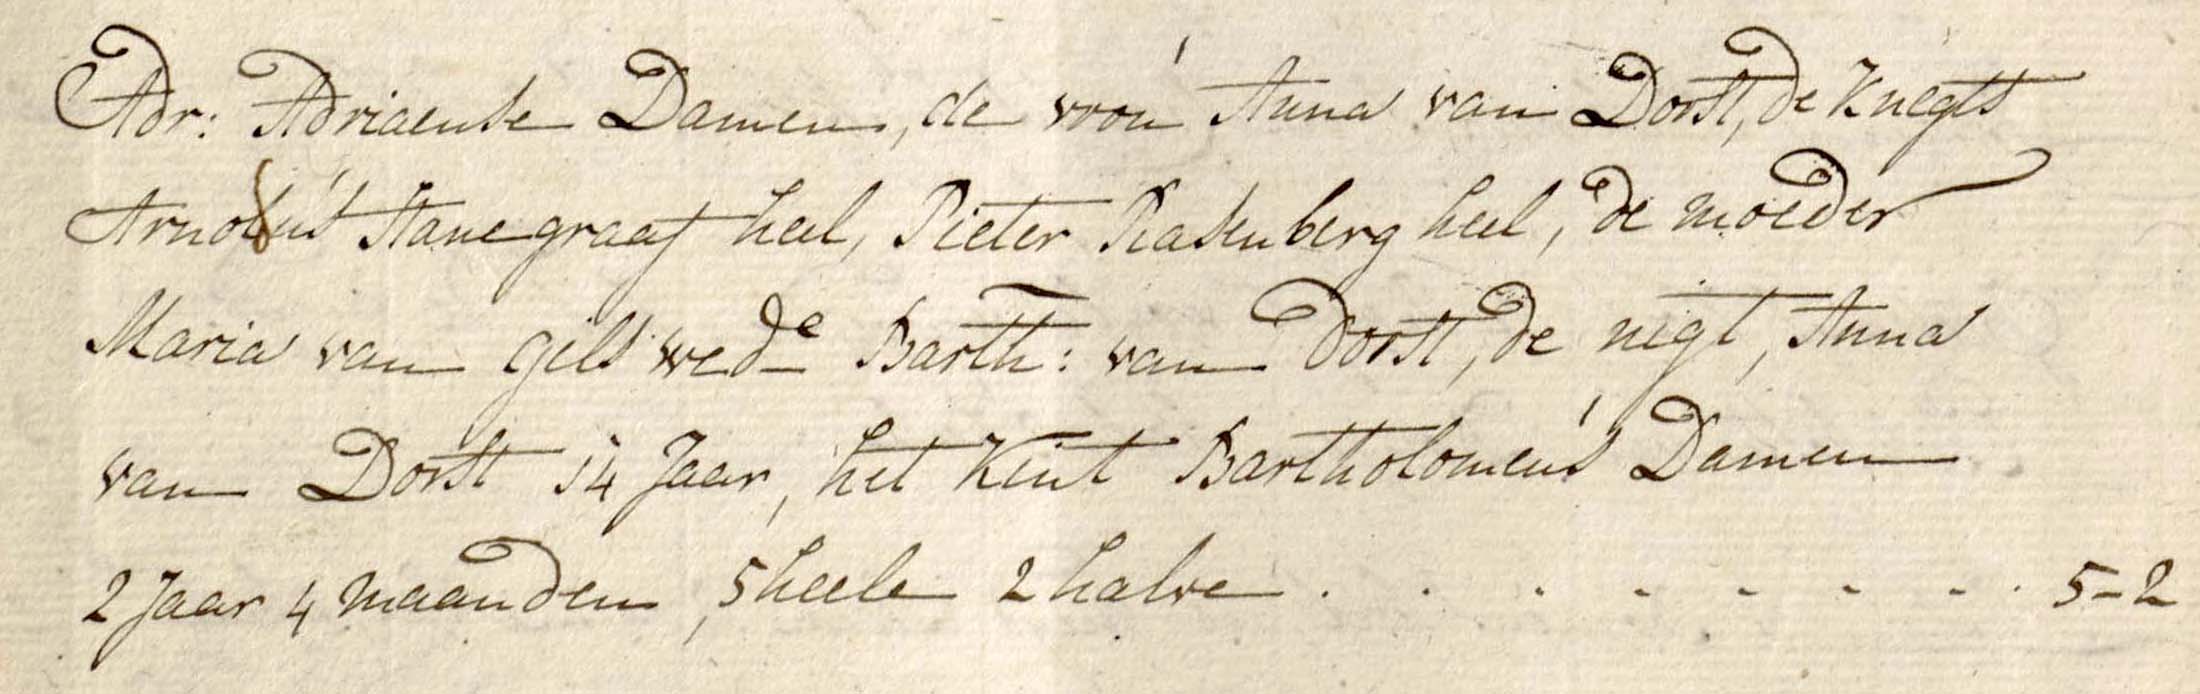 Adr: Adriaense Damen, de vrou Anna van Dorst, de Knegts
Arnoldus Stanegraaf heel, Pieter Rasenberg heel, de moeder
Maria van Gils wede Barth: van Dorst, de nigt, Anna
van Dorst 14 Jaar, het Kint Bartholomeus Damen
2 Jaar 4 maanden, 5 heele 2 halve . . . . . . . . 5-2